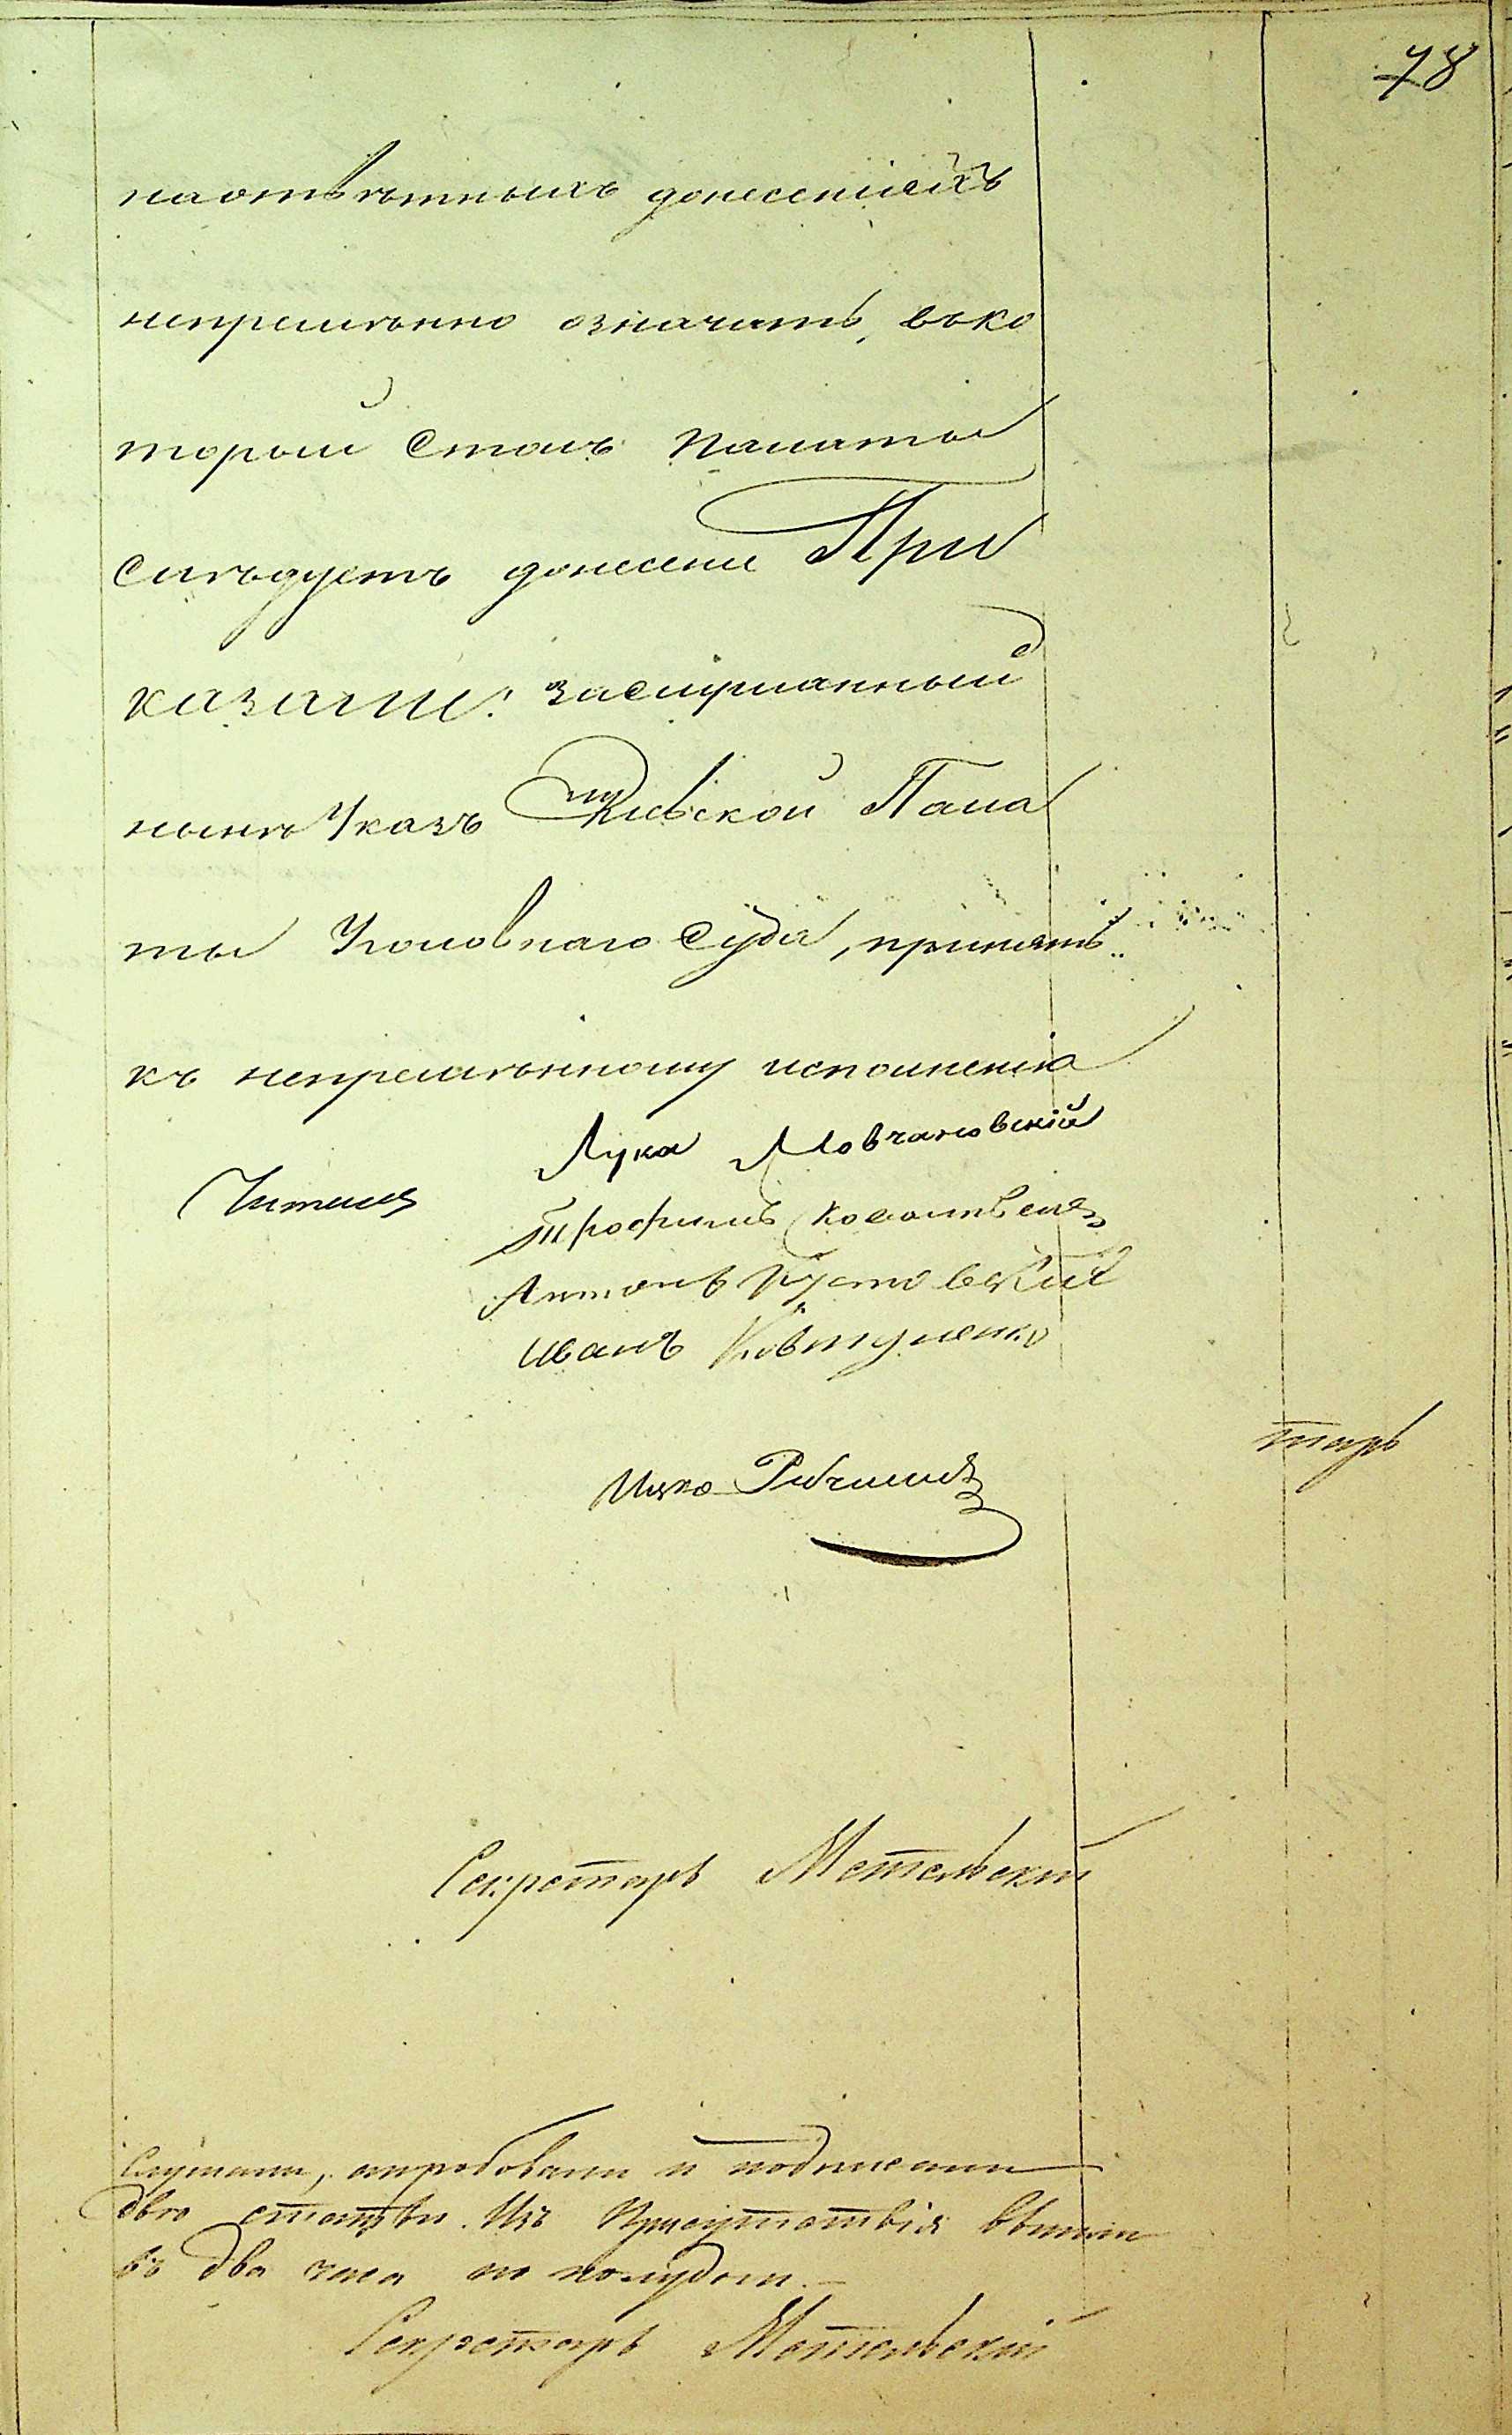 78
наотвѣтныхъ донесеніяхъ
непремѣнно означать, въко
торый столъ Палаты
слѣдуетъ донесеніе При
казали: заслушанный
нынѣ Указъ Кіевской Пала
ты Уголовнаго Суда, принять
къ непремѣнному исполненію
Лука Мовчановскій
Читалъ
Трофимъ
Антонъ Кустовскій
Иванъ Ковтуненко
тарь
Ицко
Секретарь Метельскій
Слушали, апробовали и подписали
двѣ статьи. Изъ Присутствія вышли
въ два часа по полудни.—
Секретарь Метельскій